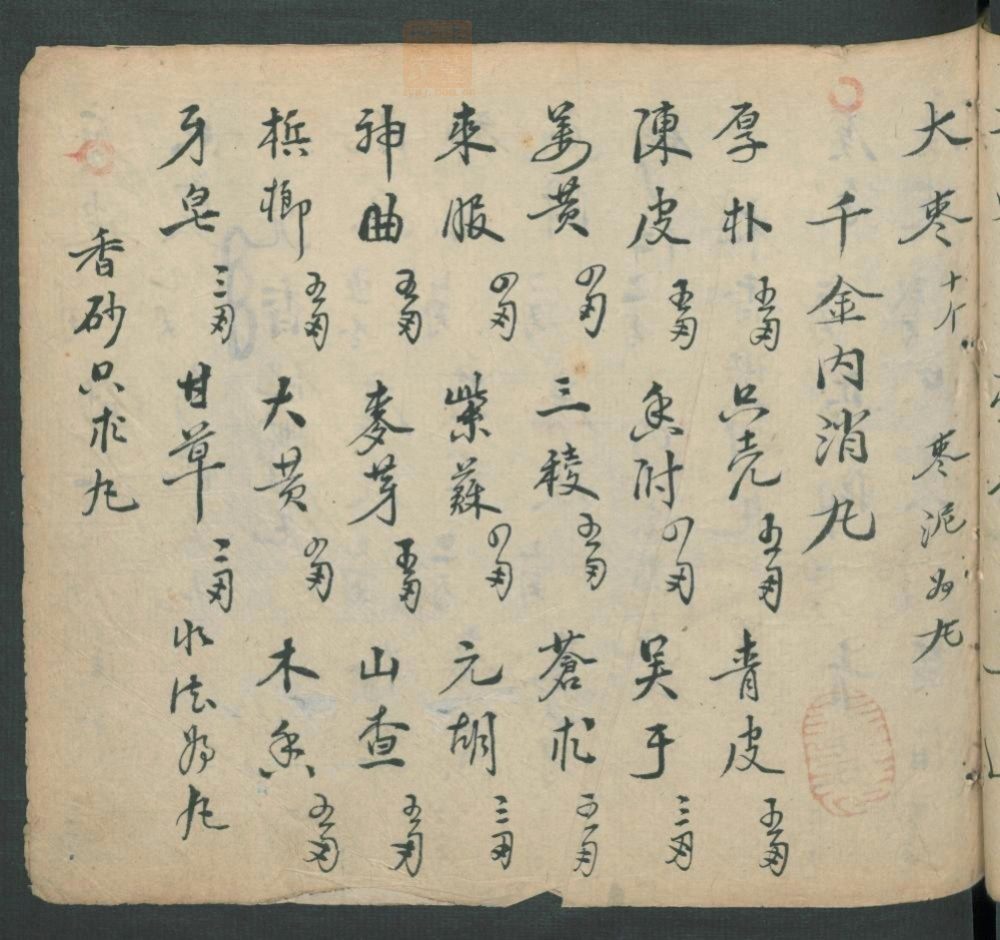 大枣十个 枣泥为丸
千金内消丸
厚朴五两 只壳五两 青皮五两
陳皮五两 香附四两 吴于三两
姜黄四两 三稜五两 蒼朮五两
來服四两 紫蘇四两 元胡三两
神曲五两 麥芽五两 山查五两
槟榔五两 大黄 木香五两
牙皂三两 甘草二两 水法为丸
香砂只朮丸